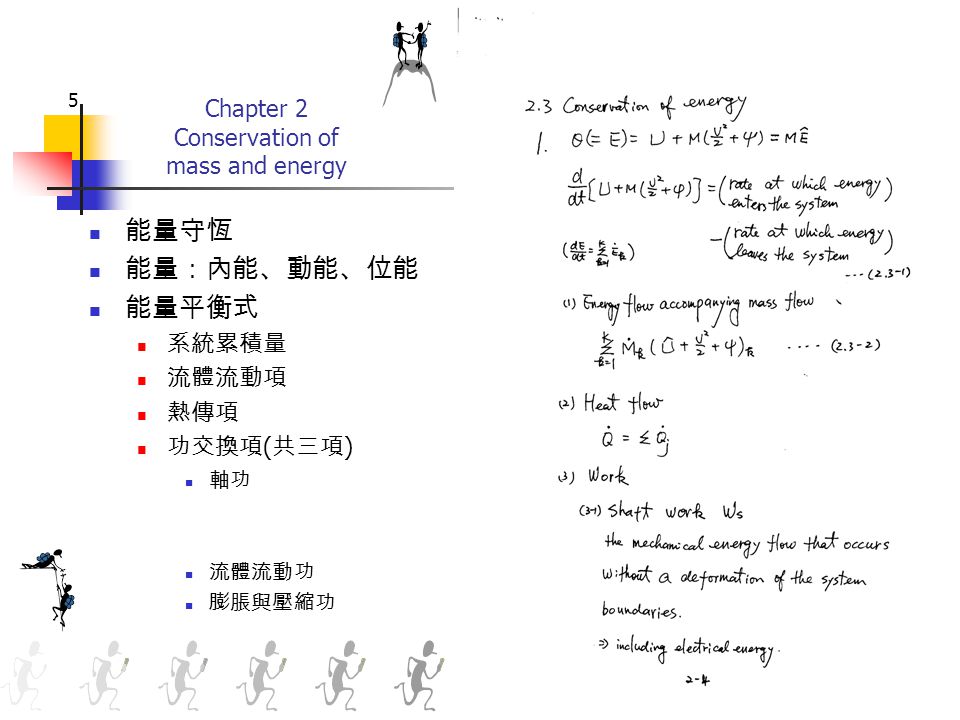 5
Chapter 2
Conservation of
mass and energy
能量守恆
能量：內能、動能、位能
能量平衡式
系統累積量
流體流動項
熱傳項
功交換項(共三項)
軸功
流體流動功
膨脹與壓縮功
2.3 Conservation of energy
1. θ(= E) = U + M(v²/2 + ψ) = MÊ
d/dt [U + M(v²/2 + φ)] = (rate at which energy
enters the system
- (rate at which energy
leaves the system)
(dE/dt = Σ_{k=1}^{K} Ė_k)
---- (2.3-1)
(1) Energy flow accompanying mass flow 、
Σ_{k=1}^{K} Ṁ_k (Û + v²/2 + ψ)_k ···· (2.3-2)
(2) Heat flow
Q̇ = Σ Q̇_j
(3) Work
(3-1) Shaft work Ws
the mechanical energy flow that occurs
without a deformation of the system
boundaries.
⇒ including electrical energy.
2-4